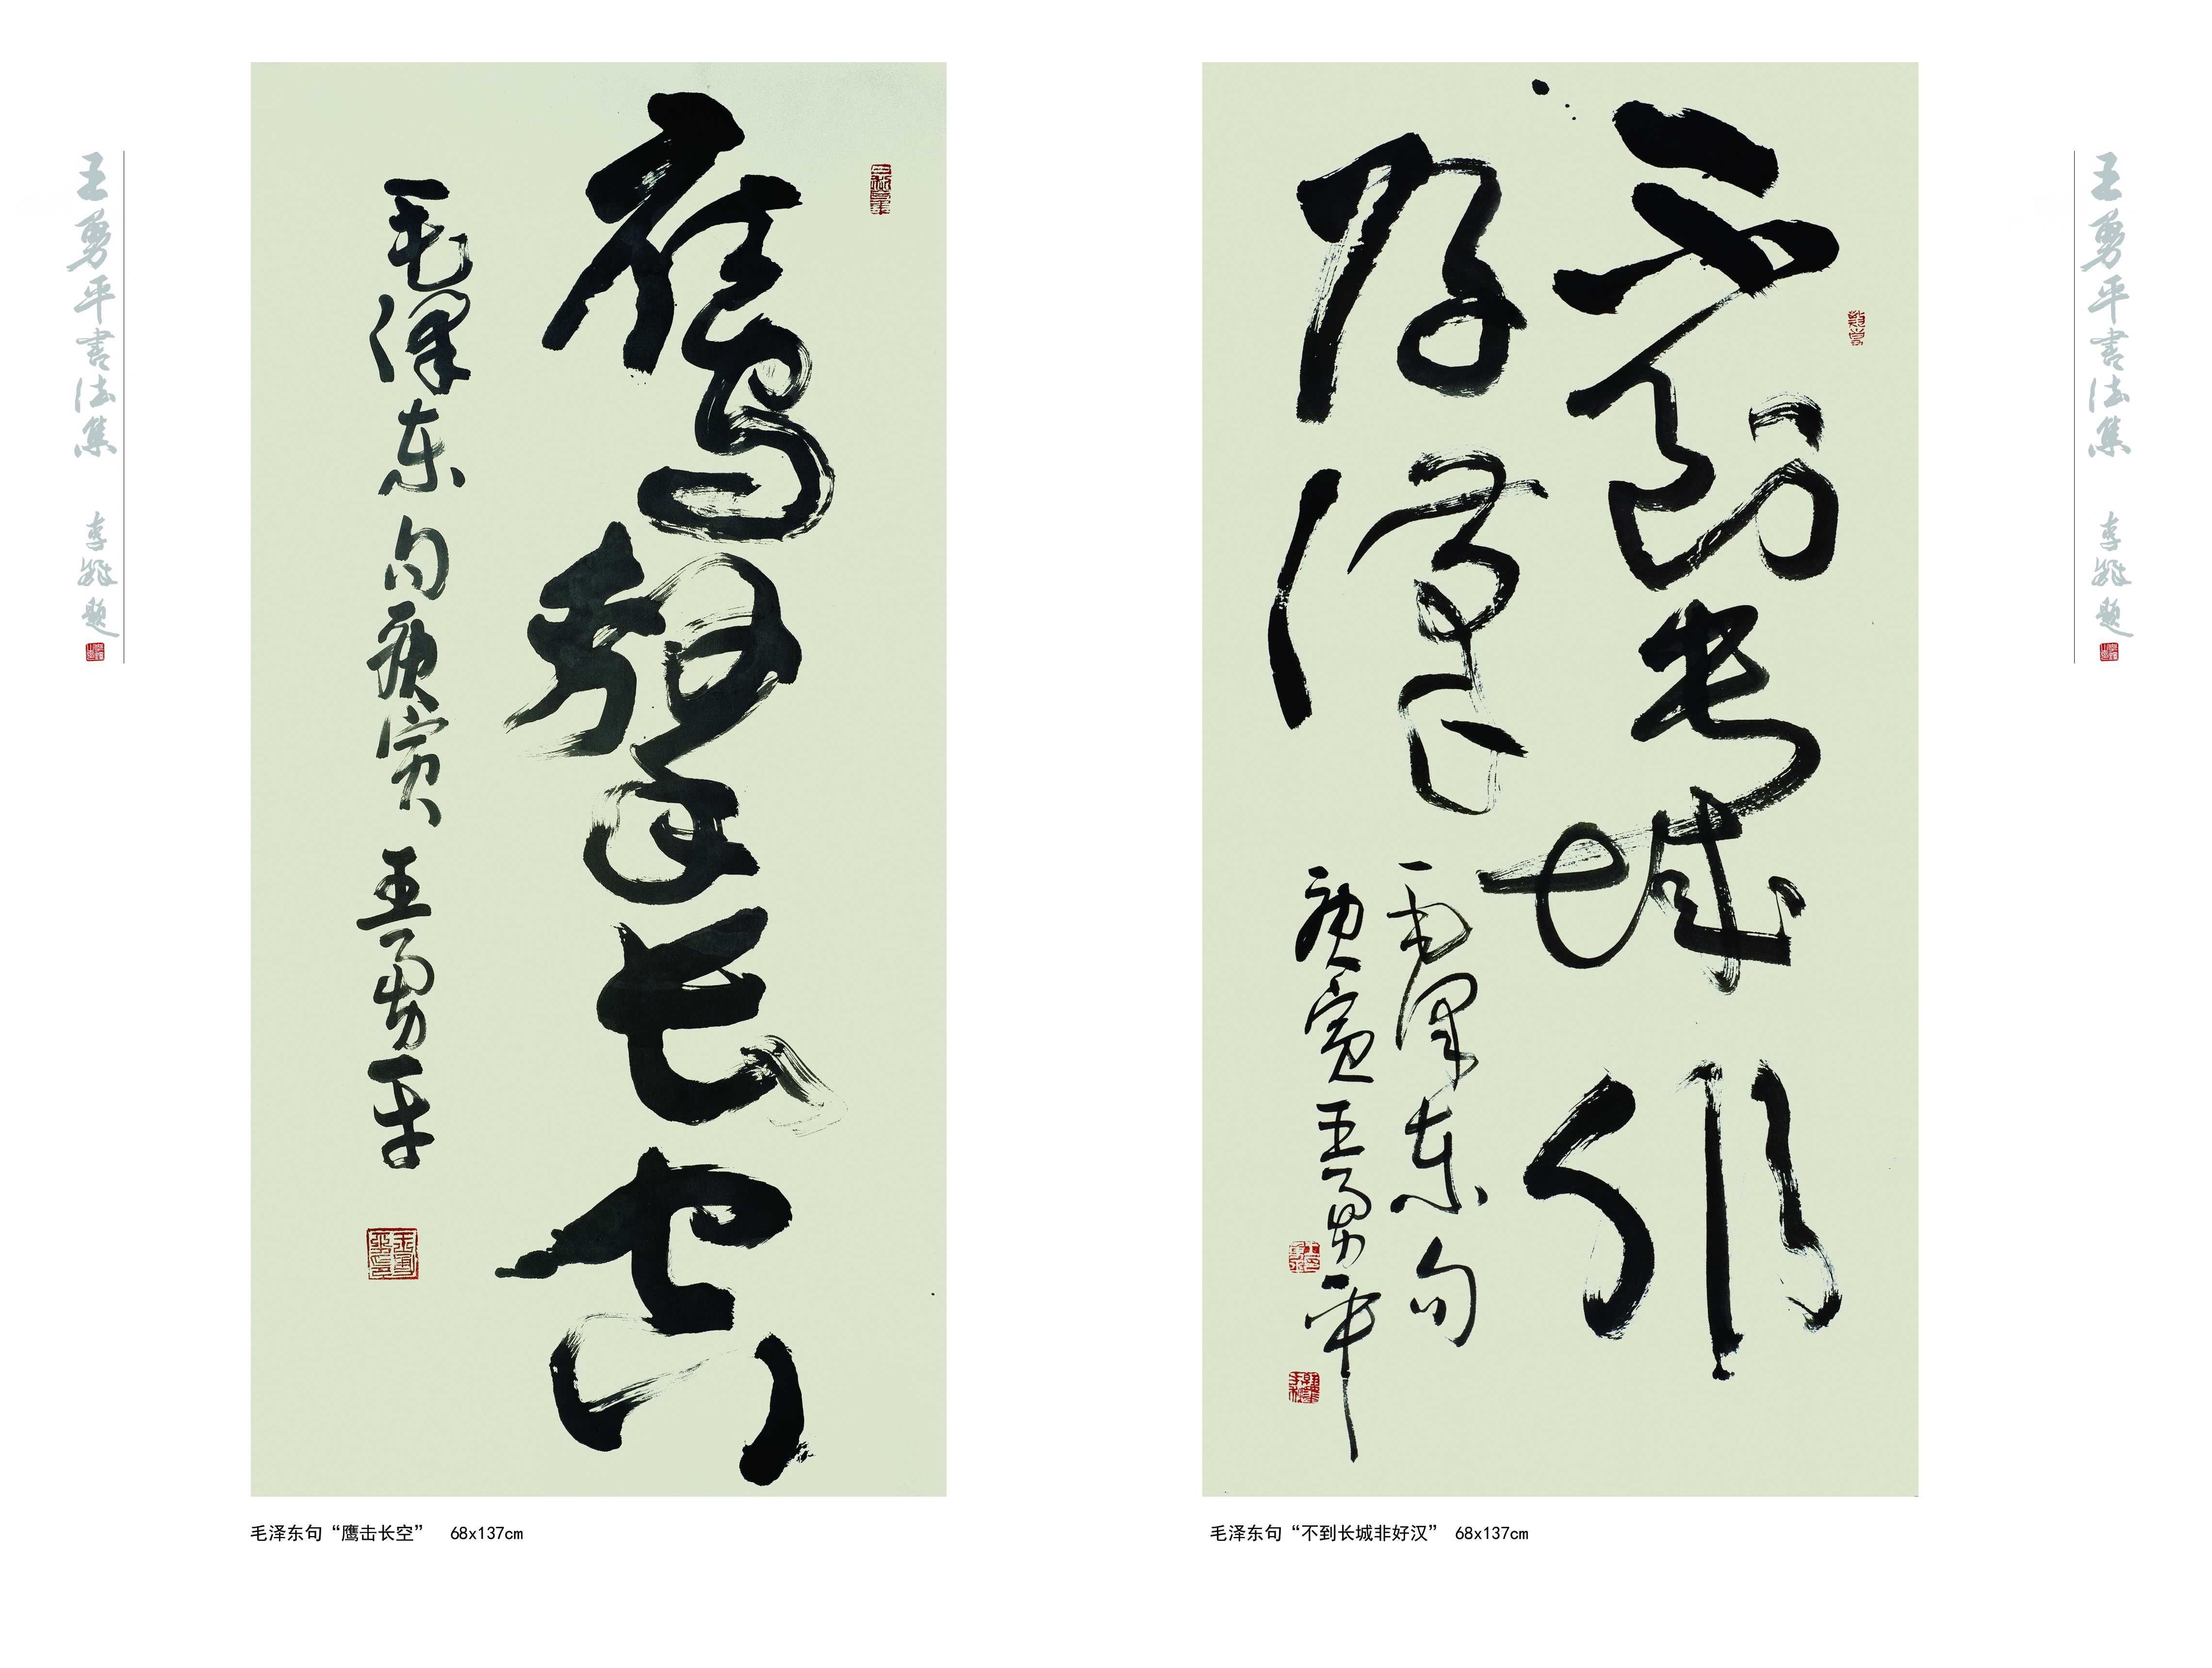 王勇平書法集
李鐸題
鷹擊长空
毛泽东句庚寅王勇平
毛泽东句“鹰击长空” 68x137cm
不到长城非
好漢
毛泽东句
庚寅王勇平
毛泽东句“不到长城非好汉” 68x137cm
王勇平書法集
李鐸題